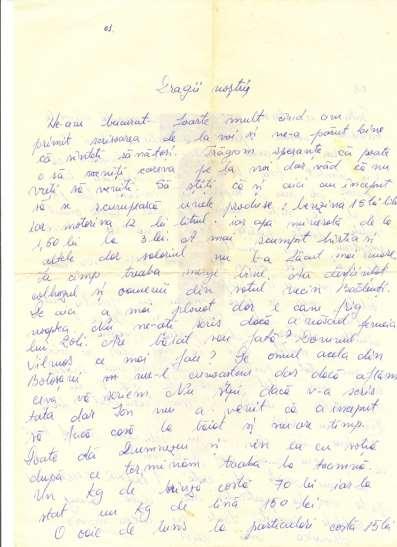 Dragii noștri
Ne-am bucurat foarte mult când am
primit scrisoarea de la voi și ne-a părut bine
că sînteți sănătoși. Trăgem speranțe că poate
o să veniți careva pe la noi dar văd că nu
vreți să veniți. Să știți că și aici au început
să se scumpească unele produse; benzina 15 lei litru
iar motorina 12 lei litrul iar apa minerală de la
1,50 lei la 3 lei. S-at mai scumpit hîrtia și
altele dar salariul nu l-a făcut mai mare.
La cîmp treaba merge bine, s-a desființat
colhozul și oamenii din satul vecin
De aici a mai plouat dar e cam frig
noaptea. Nu ne-ați scris dacă a născut femeia
lui Zoli. Are băiat sau fată? Domnul
Vilmos ce mai face? Pe omul acela din
Botoșani nu-l cunoaștem dar dacă aflăm
ceva vă scriem. Nu știu dacă v-a scris
tata dar Ion nu a venit că a început
să facă casă la băiat și nu are timp.
Poate dă Dumnezeu și vin eu cu soția
după ce terminăm treaba la toamnă.
Un kg de brînză costă 70 lei iar la
stat un kg de lînă 150 lei
O oaie de tuns la particulari costă 15 lei